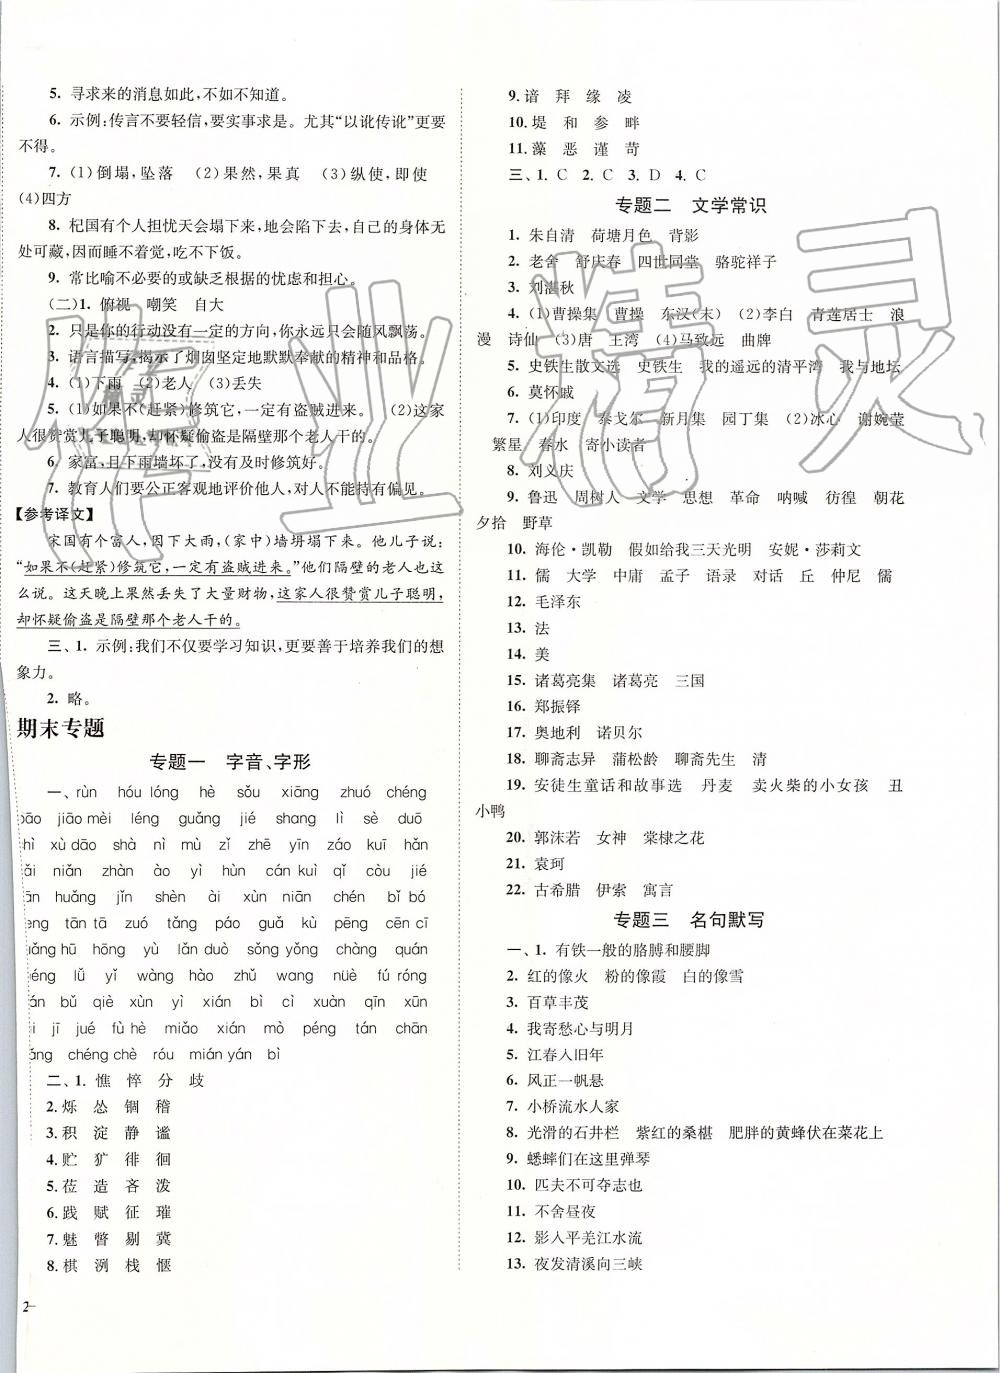 5. 寻求来的消息如此,不如不知道。
6. 示例:传言不要轻信,要实事求是。尤其“以讹传讹”更要
不得。
7. (1)倒塌,坠落 (2)果然,果真 (3)纵使,即使
(4)四方
8. 杞国有个人担忧天会塌下来,地会陷下去,自己的身体无
处可藏,因而睡不着觉,吃不下饭。
9. 常比喻不必要的或缺乏根据的忧虑和担心。
(二)1. 俯视 嘲笑 自大
2. 只是你的行动没有一定的方向,你永远只会随风飘荡。
3. 语言描写,揭示了烟囱坚定地默默奉献的精神和品格。
4. (1)下雨 (2)老人 (3)丢失
5. (1)如果不(赶紧)修筑它,一定有盗贼进来。 (2)这家
人很赞赏儿子聪明,却怀疑偷盗是隔壁的老人干的。
6. 家富,且下雨墙坏了,没有及时修筑好。
7. 教育人们要公正客观地评价他人,对人不能持有偏见。
【参考译文】
宋国有个富人,因下大雨,(家中)墙坍塌下来。他儿子说:
“如果不(赶紧)修筑它,一定有盗贼进来。”他们隔壁的老人也这
么说。这天晚上果然丢失了大量财物,这家人很赞赏儿子聪明,
却怀疑偷盗是隔壁那个老人干的。
三、1. 示例:我们不仅要学习知识,更要善于培养我们的想
象力。
2. 略。
期末专题
专题一 字音、字形
一、rùn hóu lóng hè sǒu xiāng zhuó chéng
jiāo mèi léng guǎng jié shang lì sè duō
xù dāo shà nì mù zǐ zhē yīn záo kuī hǎn
niǎn zhàn ào yì hùn cán kuì qǐ còu jié
huǎng jǐn shèn ài xùn bì diàn hè bó
tān tā zuó tǎng páo guǎ kù pēng cēn cī
hū hōng yù lǎn duò sǒng yǒng chàng quán
lǚ yǐ wàng hào zhǔ wang nüè fú róng
bǔ qiè xùn yì xián bì jìn xuàn qīn xūn
jī jué fù hè miǎo xián mò péng tán chān
chéng chè róu mián yán bì
二、1. 憔 悴 分 歧
2. 烁 怂 锢 稽
3. 积 淀 静 谧
4. 贮 犷 徘 徊
5. 莅 造 吝 泼
6. 践 赋 征 璀
7. 魅 瞥 剔 冀
8. 棋 冽 栈 惬
2
9. 谙 拜 缘 凌
10. 堤 和 参 畔
11. 藻 恶 谨 苛
三、1. C 2. C 3. D 4. C
专题二 文学常识
1. 朱自清 荷塘月色 背影
2. 老舍 舒庆春 四世同堂 骆驼祥子
3. 刘湛秋
4. (1)曹操集 曹操 东汉(末) (2)李白 青莲居士 浪
漫 诗仙 (3)唐 王湾 (4)马致远 曲牌
5. 史铁生散文选 史铁生 我的遥远的清平湾 我与地坛
6. 莫怀戚
7. (1)印度 泰戈尔 新月集 园丁集 (2)冰心 谢婉莹
繁星 春水 寄小读者
8. 刘义庆
9. 鲁迅 周树人 文学 思想 革命 呐喊 彷徨 朝花
夕拾 野草
10. 海伦·凯勒 假如给我三天光明 安妮·莎莉文
11. 儒 大学 中庸 孟子 语录 对话 丘 仲尼 儒
12. 毛泽东
13. 法
14. 美
15. 诸葛亮集 诸葛亮 三国
16. 郑振铎
17. 奥地利 诺贝尔
18. 聊斋志异 蒲松龄 聊斋先生 清
19. 安徒生童话和故事选 丹麦 卖火柴的小女孩 丑
小鸭
20. 郭沫若 女神 棠棣之花
21. 袁珂
22. 古希腊 伊索 寓言
专题三 名句默写
一、1. 有铁一般的胳膊和腰脚
2. 红的像火 粉的像霞 白的像雪
3. 百草丰茂
4. 我寄愁心与明月
5. 江春入旧年
6. 风正一帆悬
7. 小桥流水人家
8. 光滑的石井栏 紫红的桑椹 肥胖的黄蜂伏在菜花上
9. 蟋蟀们在这里弹琴
10. 匹夫不可夺志也
11. 不舍昼夜
12. 影入平羌江水流
13. 夜发清溪向三峡
作业精灵